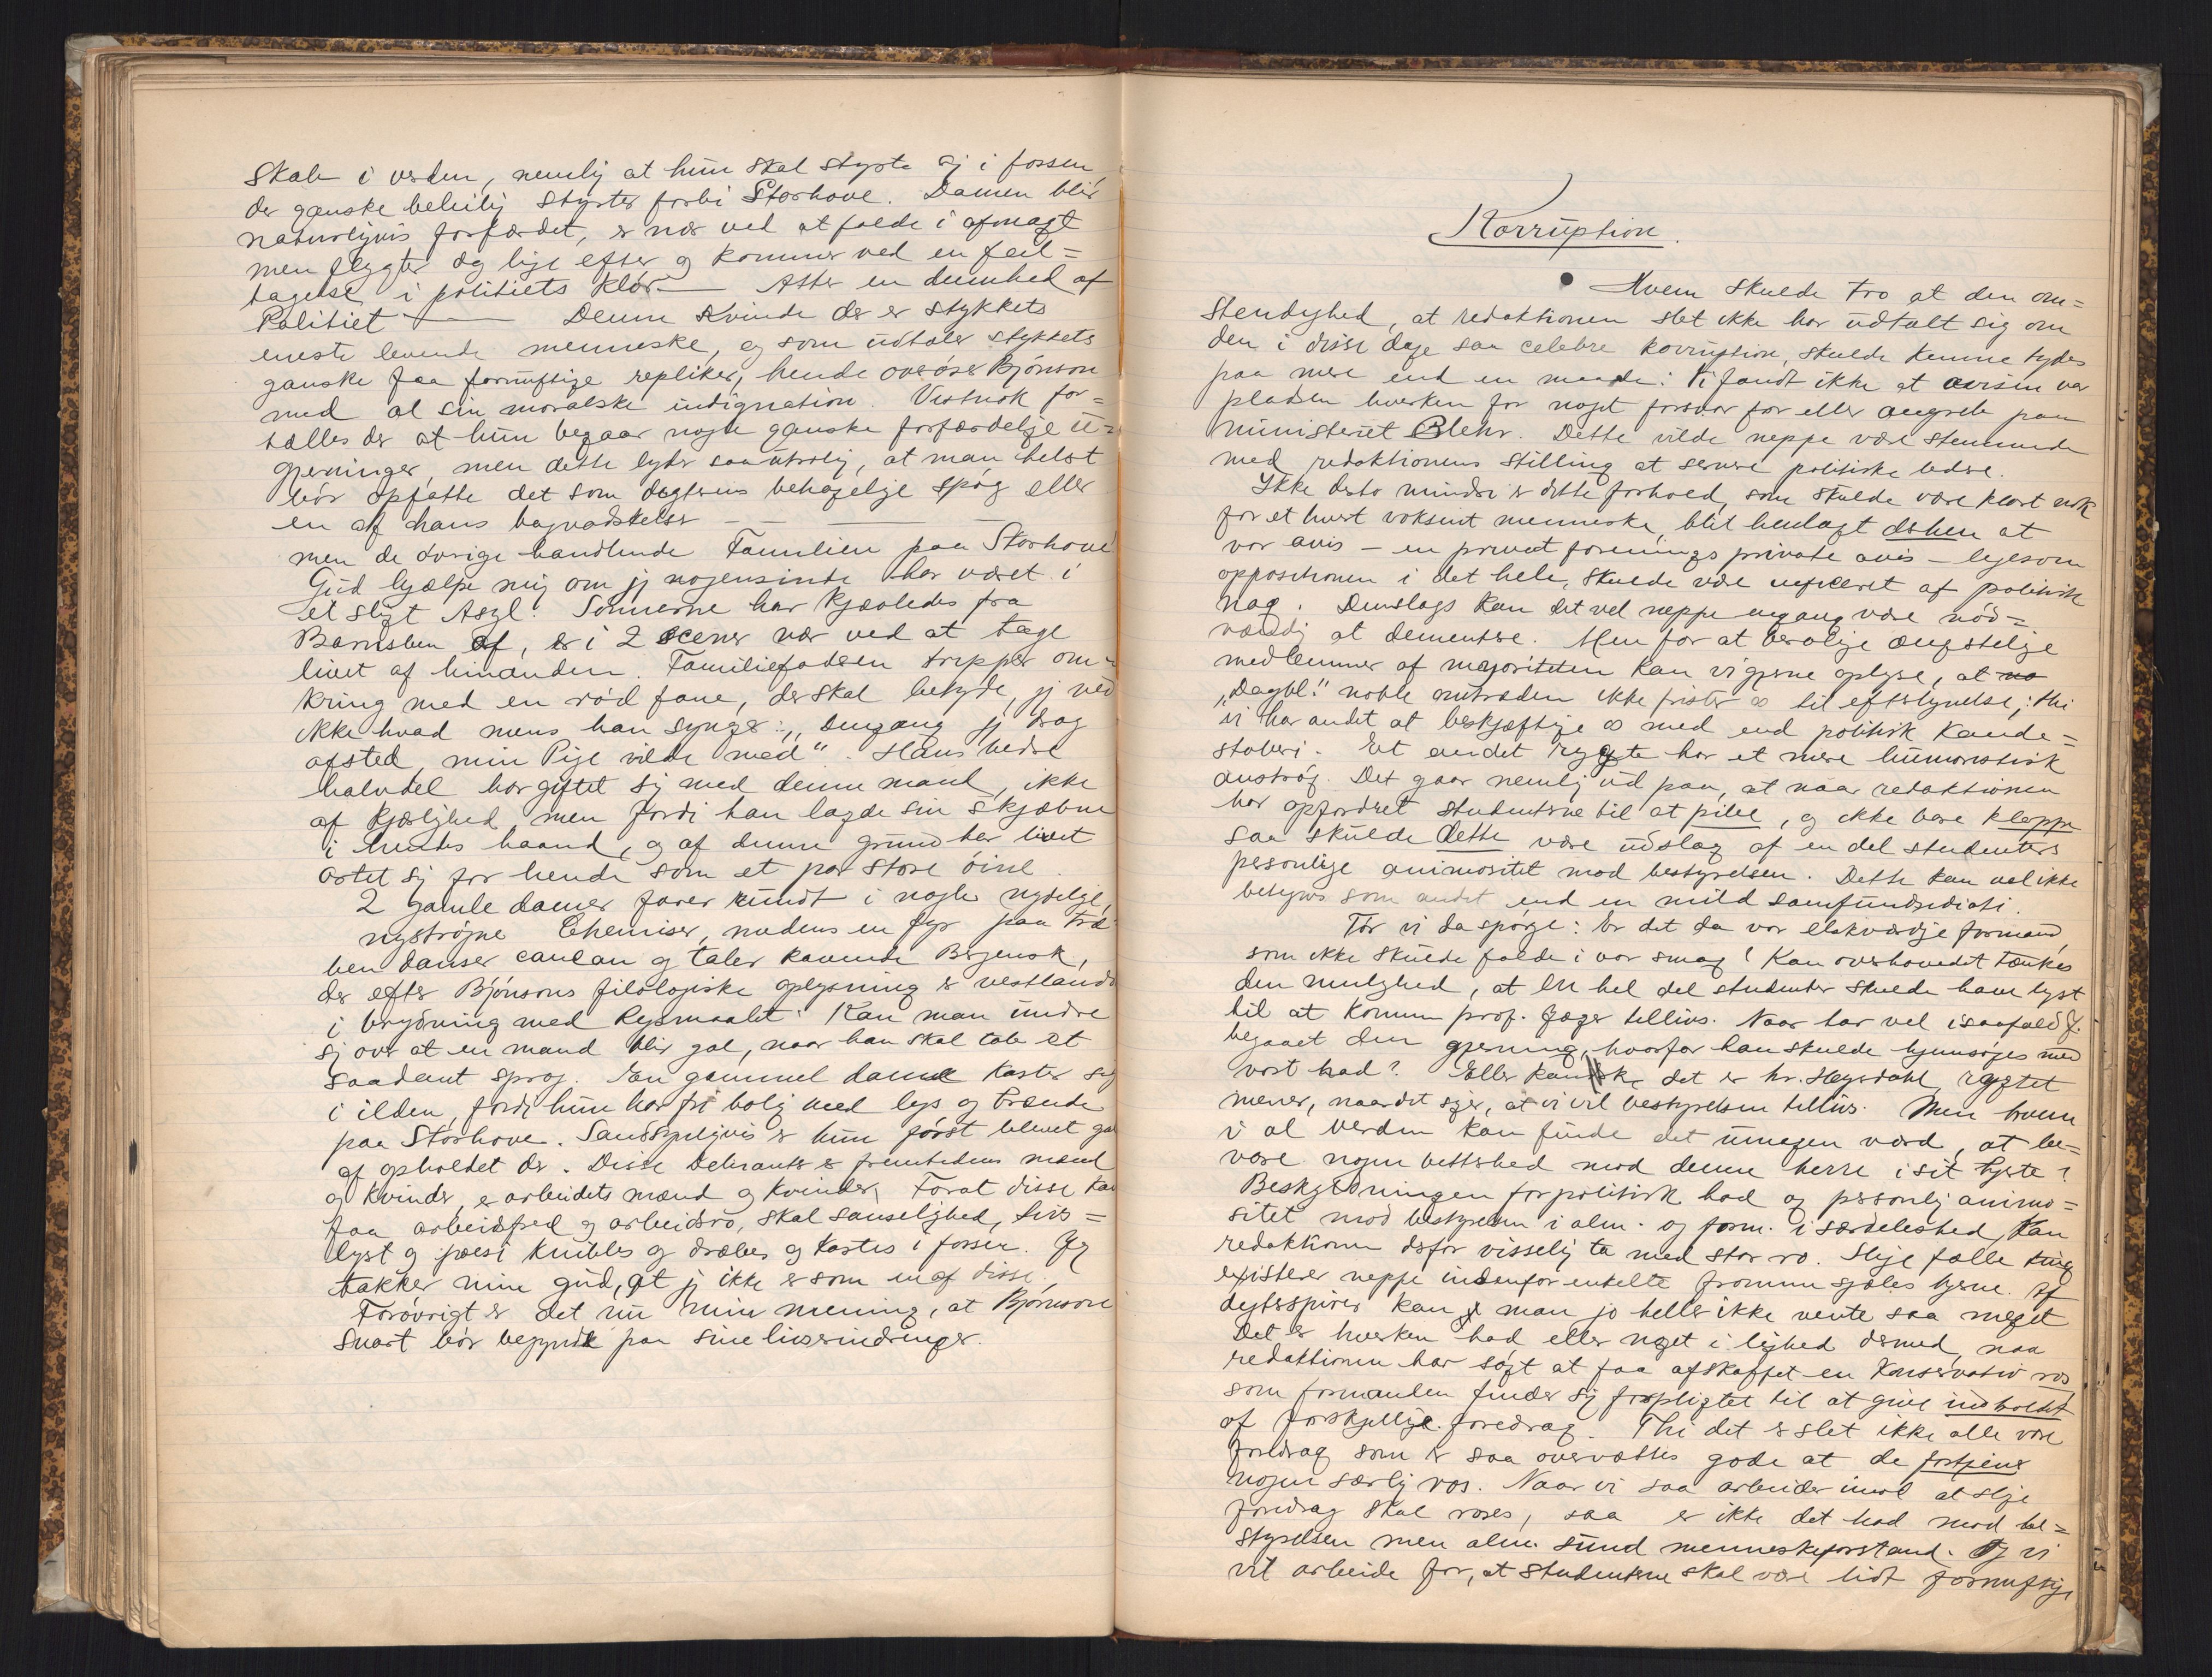 skab i verden, nemlig at hun skal styrte sig i fossen,
der ganske beleilig styrter forbi Storhove. Damen blir
naturligvis forfærdet, er nær ved at falde i afmagt
men flygter dog lige efter og kommer ved en feil=
tagelse i politiets klør — Atter en dumhed af
Politiet — Denne kvinde der er stykkets
eneste levende menneske, og som udtaler stykkets
ganske faa fornuftige repliker, hende overøser Bjørnson
med al sin moralske indignation. Vistnok for=
tælles der at hun begaar nogle ganske forfærdelige u=
gjerninger, men dette lyder saa utrolig, at man helst
bør opfatte det som digterens behagelige spøg eller
en af hans bagvadskelser — — —
men de øvrige handlende Familien paa Storhove
Gud hjælpe mig om jeg nogensinde har været i
et sligt Asyl. Sønnerne har kjæveledes fra
Barnsben af, er i 2 scener nær ved at tage
livet af hinanden. Familiefaderen tripper om=
kring med en rød fane, der skal betyde, jeg ved
ikke hvad mens han synger: „dengang jeg drog
afsted, min Pige vilde med". Hans bedre
halvdel har giftet sig med denne mand, ikke
af kjærlighed, men fordi han lagde sin skjæbne
i hendes haand, og af denne grund har livet
artet sig for hende som et par store øine.
2 gamle damer farer rundt i nogle nydelige,
nystrøgne Chemiser, medens en fyr paa træ=
ben danser cancan og taler ravende Bergensk,
der efter Bjørnsons filologiske oplysning er vestlands
i brydning med Regsmaalet. Kan man undre
sig over at en mand blir gal, naar han skal tale et
saadant sprog. En gammel dame kaster sig
i ilden, fordi hun har fri bolig med lys og brænde
paa Storhove. Sandsynligvis er hun først blevet gal
af opholdet der. Disse Delirants er fremtidens mænd
og kvinder, er arbeidets mænd og kvinder, Forat disse kan
faa arbeidsfred og arbeidsro, skal sanselighed, livs=
lyst og poesi knibles og dræbes og kastes i fossen. Jeg
takker min gud, at jeg ikke er som en af disse.
Forøvrigt er det nu min mening, at Bjørnson
snart bør begynde paa sine livserindringer.
Korruption.
Hvem skulde tro at den om=
stendighed, at redaktionen slet ikke har udtalt sig om
den i disse dage saa celebre korruption, skulde kunne tydes
paa mere end en maade: Vi fandt ikke at avisen var
pladsen hverken for noget forsvar for eller angreb paa
ministeriet Blehr. Dette vilde neppe være stemmende
med redaktionens stilling at servere politiske ledere.
Ikke desto mindre er dette forhold, som skulde være klart nok
for et hvert voksent menneske, blit henlagt derhen at
vor avis – en privat forenings private avis – ligesom
oppositionen i det hele, skulde være inficeret af politisk
nag. Denslags kan det vel neppe engang være nød=
vændig at dementere. Men for at berolige ængstelige
medlemmer af majoriteten kan vi gjerne oplyse, at
„Dagbl.s" noble optræden ikke frister os til efterlignelse; thi
vi har andet at beskjæftige os med end politisk kande=
støberi. Et andet rygte har et mere humoristisk
anstrøg. Det gaar nemlig ud paa, at naar redaktionen
har opfordret studenterne til at pibe, og ikke bare klappe
saa skulde dette være udslag af en del studenters
personlige animositet mod bestyrelsen. Dette kan vel ikke
betegnes som andet end en mild samfundsidioti.
Tør vi da spørge: Er det da vor elskværdige formand,
som ikke skulde falde i vor smag? Kan overhovedet tænkes
den mulighed, at en hel del studenter skulde have lyst
til at komme prof. Jæger tillivs. Naar har vel isaafald J.
begaaet den gjerning, hvorfor han skulde hjemsøges med
vort had? Eller kanske det er hr. Heyerdahl rygtet
mener, naar det siger, at vi vil bestyrelsen tillivs. Men hvem
i al verden kan finde det umagen værd, at be=
vare nogen bitterhed mod denne herre i sit hjerte?
Beskyldningen for politisk had og personlig animo=
sitet mod bestyrelsen i alm. og form. i særdeleshed, kan
redaktionen derfor visselig ta med stor ro. Slige fæle ting
existerer neppe indenfor enkelte fromme sjæles hjerne. Af
digterspirer kan man jo heller ikke vente saa meget
Det er hverken had eller noget i lighed dermed, naar
redaktionen har søgt at faa afskaffet en konservativ ros
som formanden finder sig forpligtet til at give indholdet
af forskjellige foredrag. Thi det er slet ikke alle vore
foredrag som er saa overvættes gode at de fortjener
nogen særlig ros. Naar vi saa arbeider imod at slige
foredrag skal roses, saa er ikke det had mod be=
styrelsen men alm. sund menneskeforstand. Og vi
vil arbeide for, at studenterne skal være lidt fornuftige